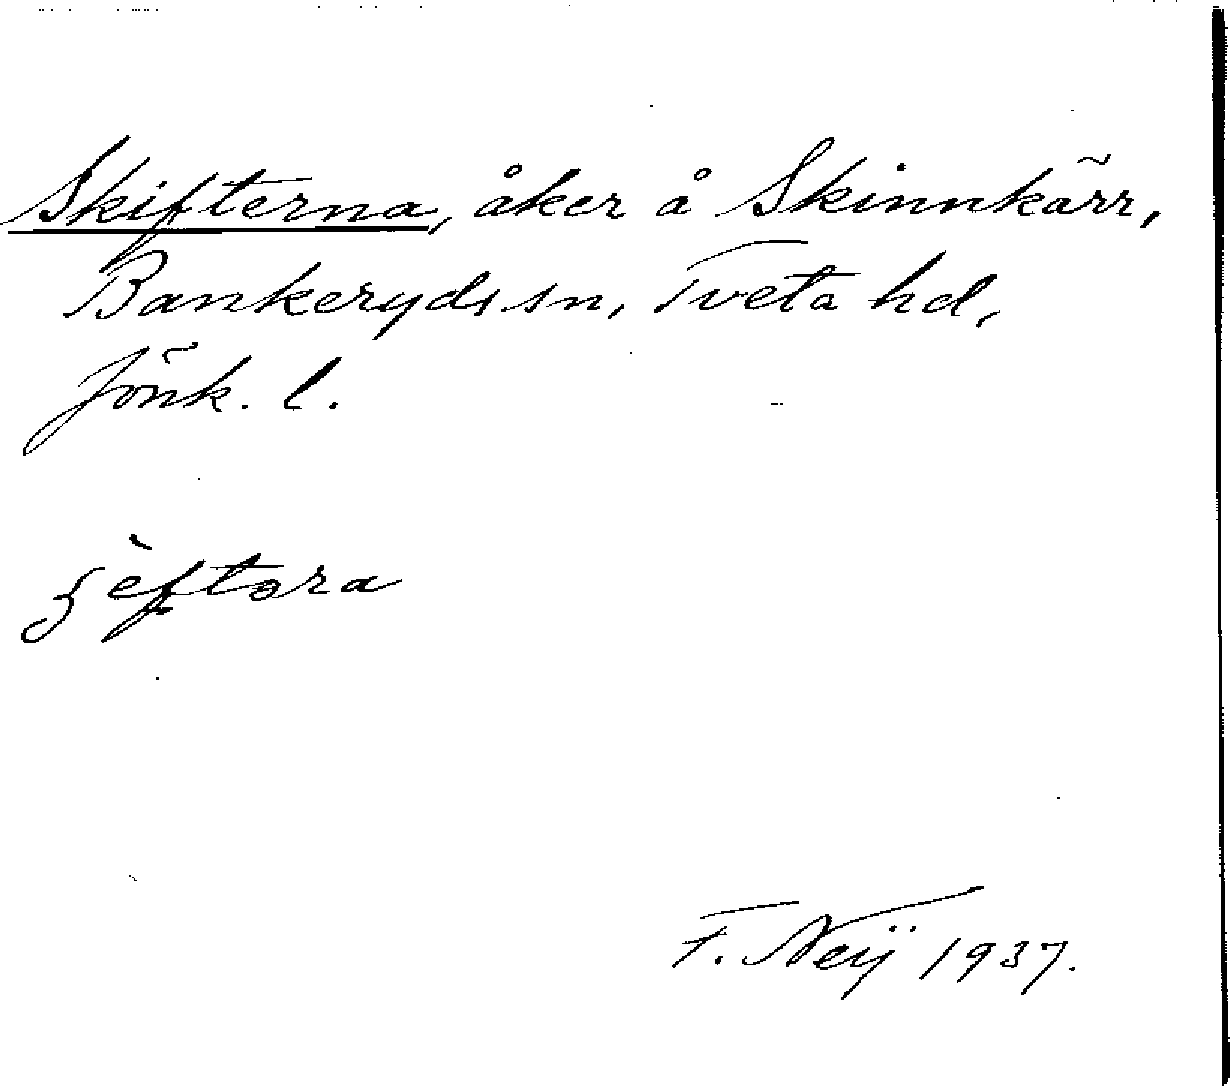 Skifterna, åker å Skinnkärr,
Bankeryds sn, Tveta hd,
Jönk. l.
ʒèftəra
F. Neij 1937.